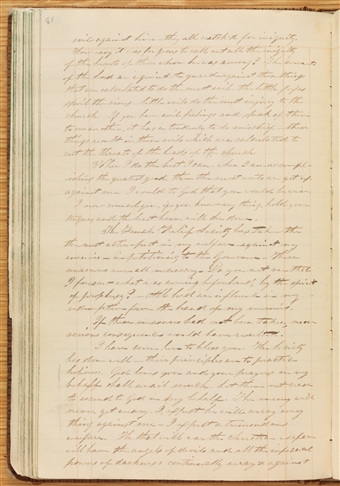 61
evil against him they all watched for iniquity
How easy it was for Jesus to call out all the iniquity
of the hearts of those whom he was among? The servants
of the Lord are required to guard against those things
that are calculated to do the most evil the little foxes
spoil the vines little evils do the most injury to the
church. If you have evil feelings and speak of them
to one another, it has a tendency to do mischief these
things result in those evils which are calculated to
cut the throats of the heads of the church
When I do the best I can when I am accompl-
ishing the greatest good, then the most evils are got up
against me. I would to God that you would be wise
I now counsel you, if you know any thing, hold your
tongues and the least harm will be done.
The Female Relief Society has taken the
the most active part in my welfare against my
enemies in petitioning to the Governor These
measures were all necessary. Do you not see that
I foresaw what was coming beforehand, by the spirit
of prophesy? All had an influence in my
redemption from the hand of my enemies.
If these measures had not been taken, more
serious consequences would have resulted.
I have come here to bless you. The Society
has done well their principles are to practice
holiness. God loves you and your prayers in my
behalf shall avail much. Let them not cease
to ascend to God in my behalf. The enemy will
never get weary I expect he will array every
thing against me I expect a tremendous
warfare. He that will war the christian warfare
will have the angels of devils and all the infernal
powers of darkness continually array'd against